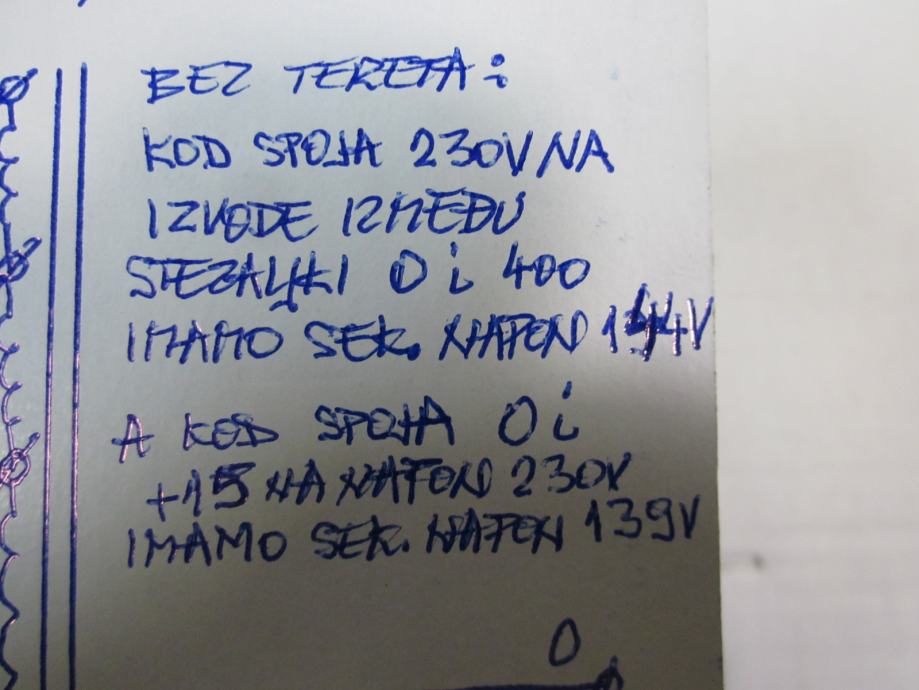 BEZ TERETA:
KOD SPOJA 230V NA
IZVODE IZMEĐU
STEZALJKI 0 i 400
IMAMO SEK. NAPON 144V
A KOD SPOJA 0 i
+15 NA NAPON 230V
IMAMO SEK. NAPON 139V
0